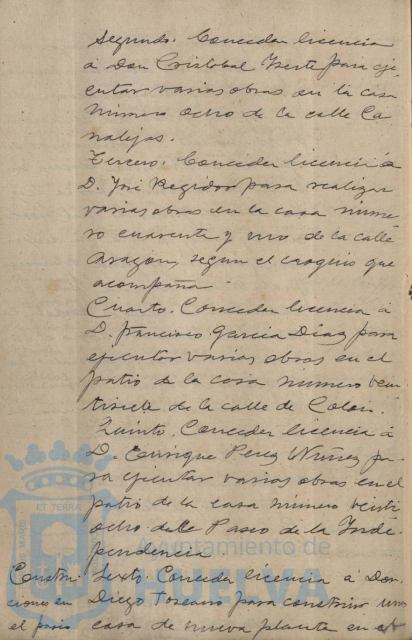 Segundo. Conceder licencia
á Don Cristobal Yuste para eje-
cutar varias obras en la casa
número ocho de la calle Ca
nalejas.
Tercero. Conceder licencia á
D. José Regidor para realizar
varias obras en la casa núme
ro cuarenta y uno de la calle
Aragon, segun el croquis que
acompaña
Cuarto. Conceder licencia á
D. Francisco Garcia Diaz para
ejecutar varias obras en el
patio de la casa número vein
tisiete de la calle de Colon.
Quinto. Conceder licencia á
D. Enrique Perez Nuñez pa
ra ejecutar varias obras en el
patio de la casa número veinti
ocho del Paseo de la Inde-
pendencia
Constru-
ciones en
el paseo
Sexto. Conceder licencia á Don
Diego Toscano para construir una
casa de nueva planta en el
ET TERRA
Ayuntamiento de
HUELVA